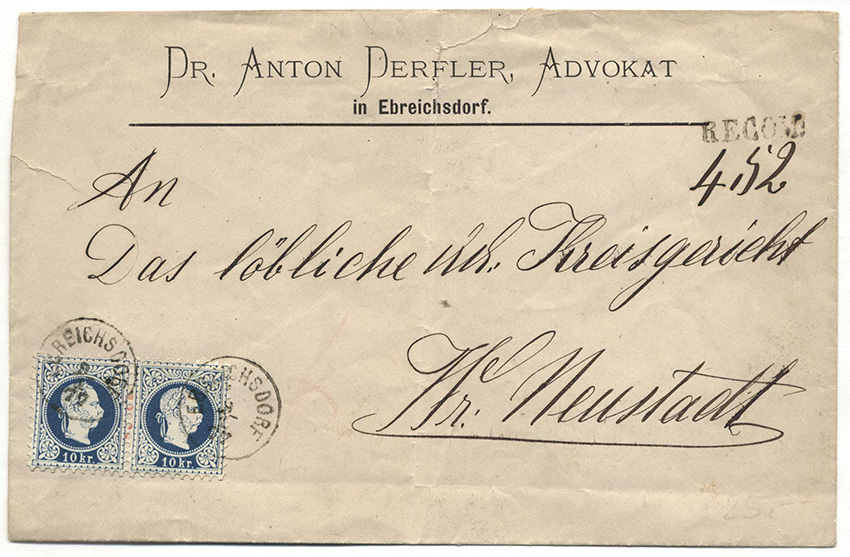 DR. ANTON DERFLER, ADVOKAT
in Ebreichsdorf.
RECOM
452
An
Das löbliche k.k. Kreisgericht
Wr. Neustadt
EBREICHSDORF
EBREICHSDORF
10 kr.
10 kr.
25.-